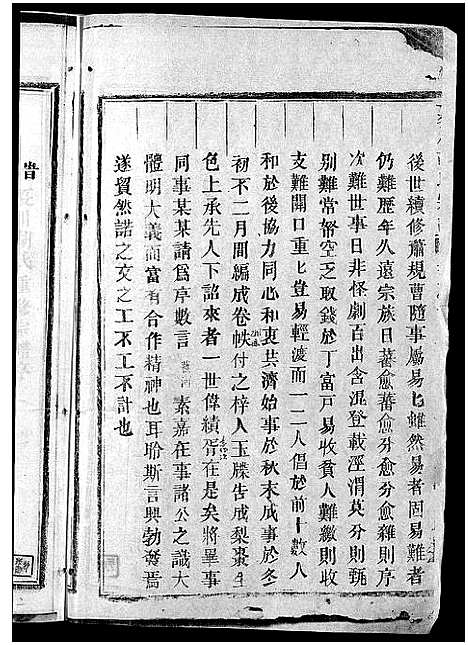 後世續修蕭規曹隨事屬易匕雖然易者固易難者
仍難歷年久遠宗族日蕃愈蕃愈分愈分愈雜則序
次難世事日非怪劇百出含混登載涇渭莫分則甄
別難常帑空乏取錢於丁富戸易收貧人難繳則收
支難開口重匕豈易輕渡而一二人倡於前十數人
和於後協力同心和衷共濟始事於秋末成事於冬
初不二月間編成卷帙付之梓人玉牒告成梨棗生
色上承先人下詔來者一世偉績胥在是矣將畢事
同事某某請為序數言素嘉在事諸公之識大
體明大義而富有合作精神也耳聆斯言興勃發焉
遂貿然諾之文之工不工不計也
譜